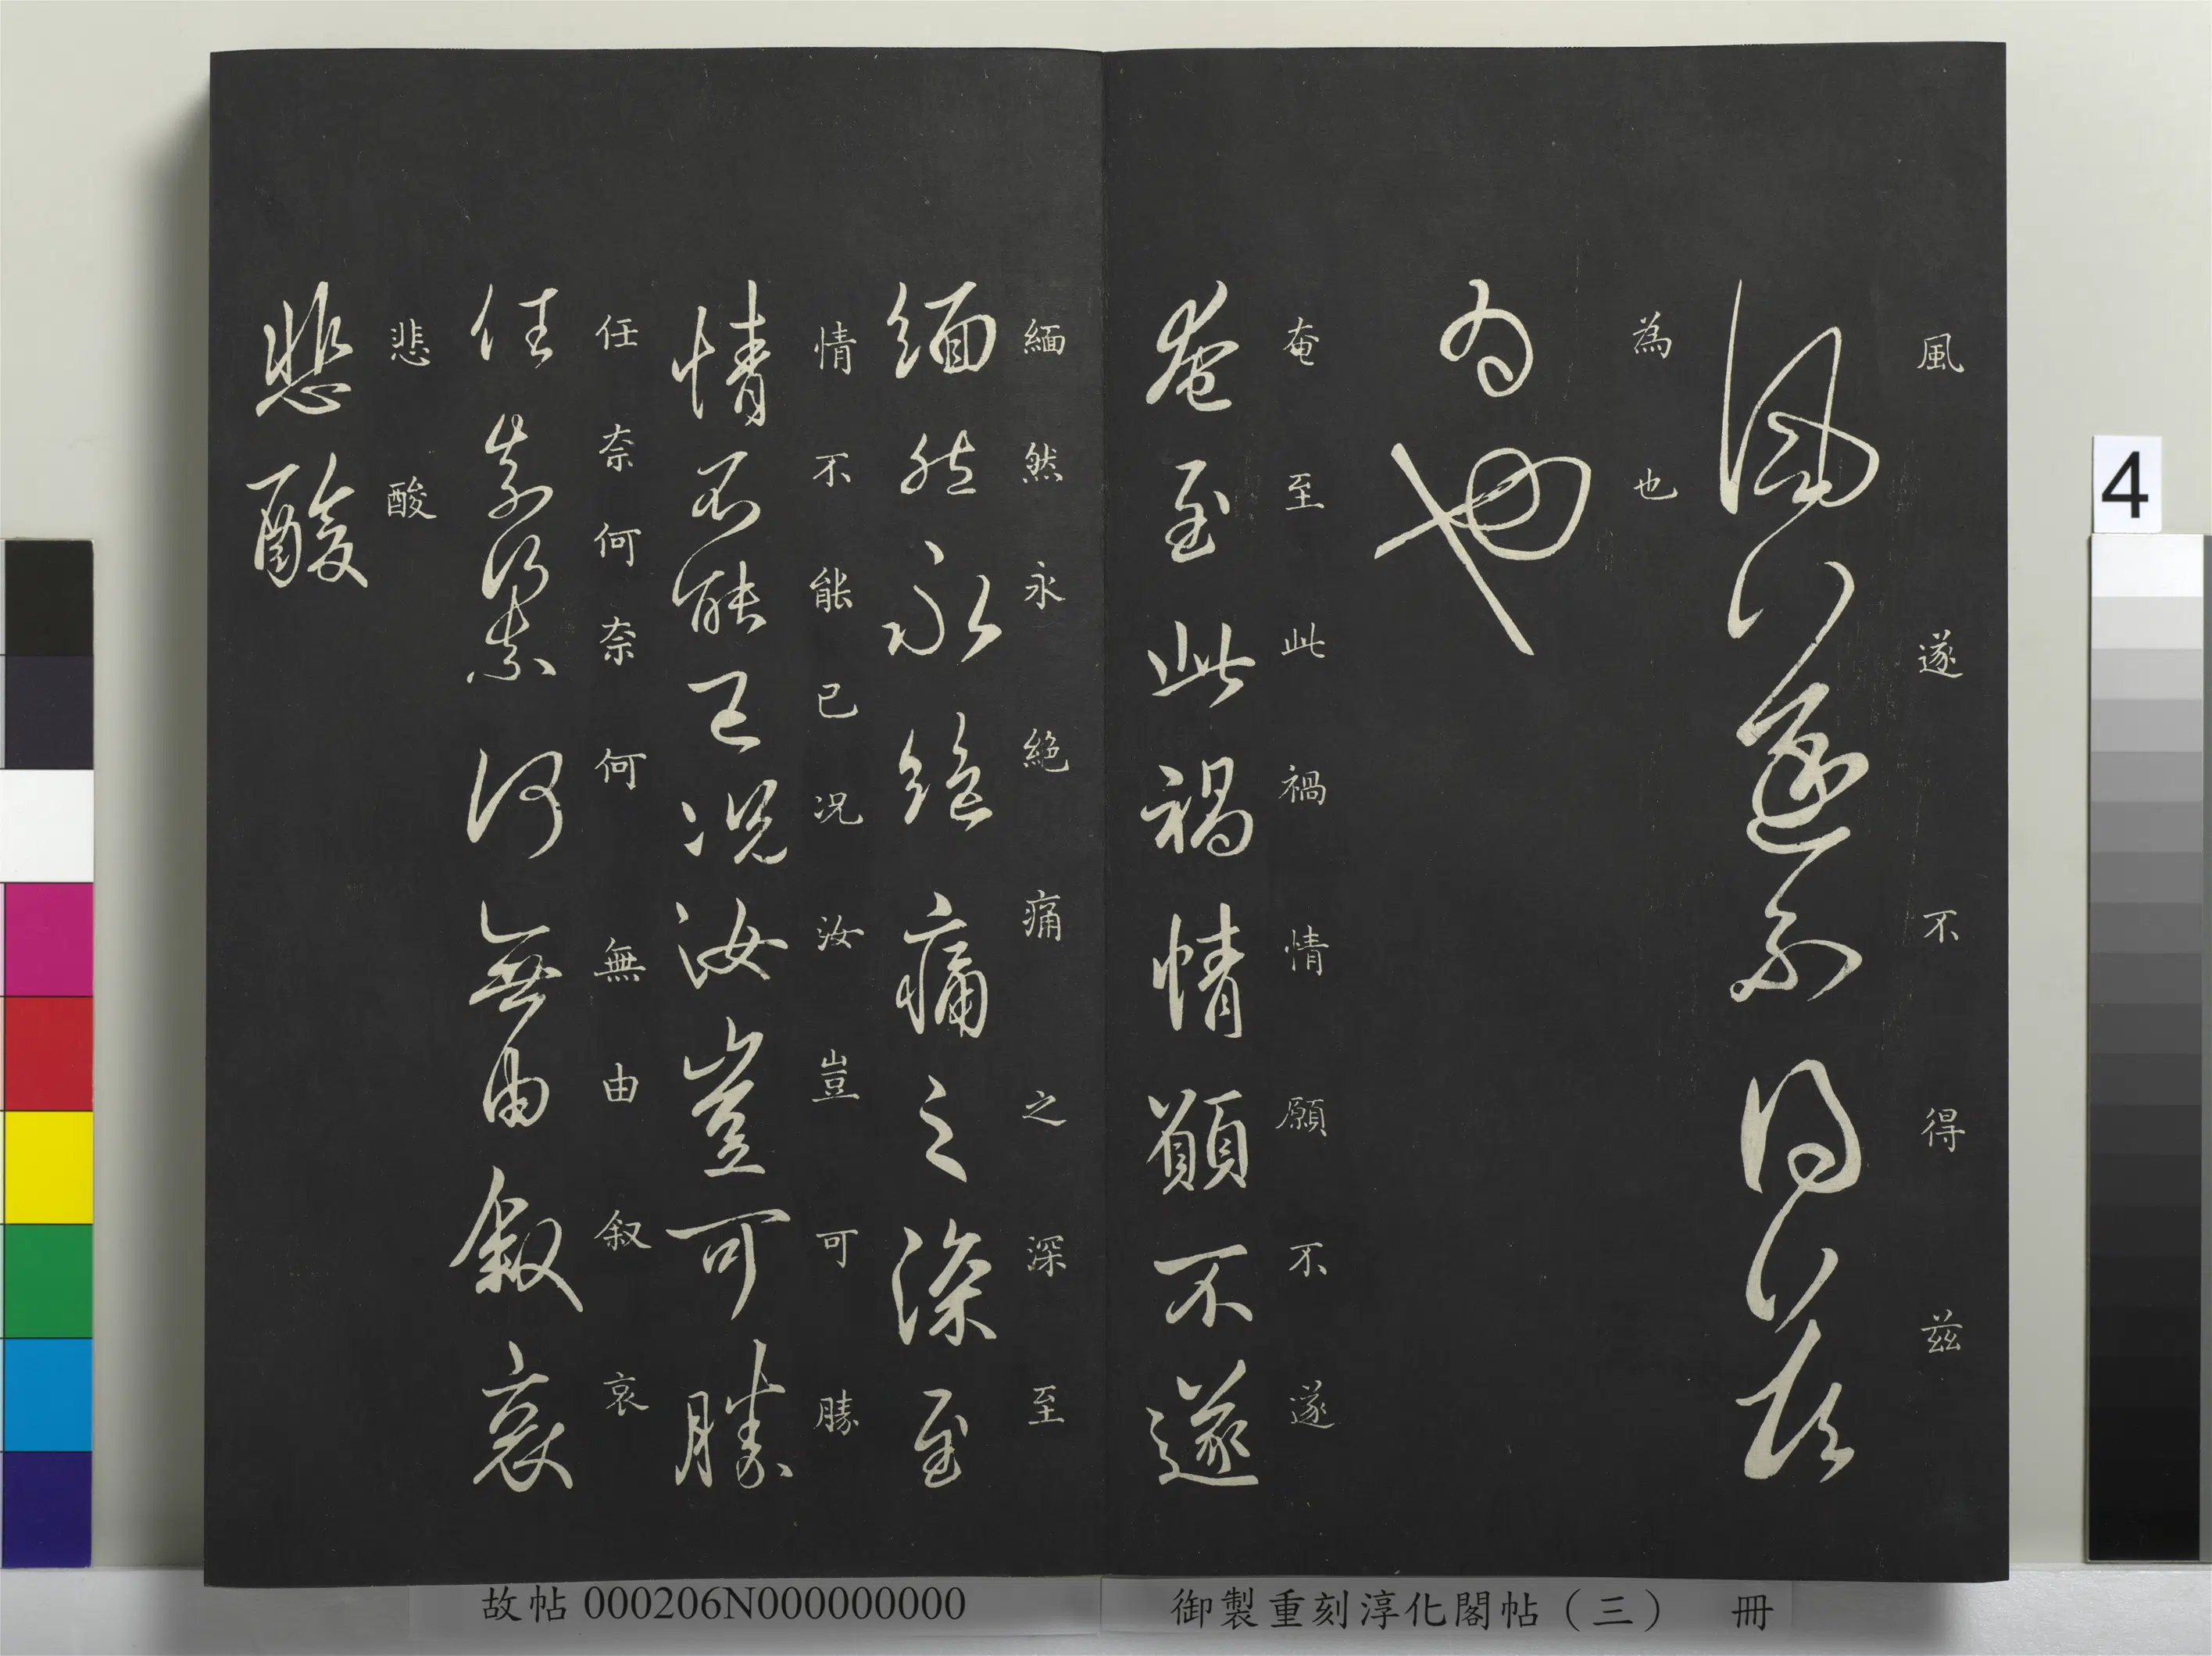 風遂不得茲
風遂不得茲
為也
為也
奄至此禍情願不遂
奄至此禍情願不遂
緬然永絕痛之深至
緬然永絕痛之深至
情不能已況汝豈可勝
情不能已況汝豈可勝
任奈何奈何無由叙哀
任奈何奈何無由叙哀
悲酸
悲酸
4
御製重刻淳化閣帖（三） 冊
故帖000206N000000000